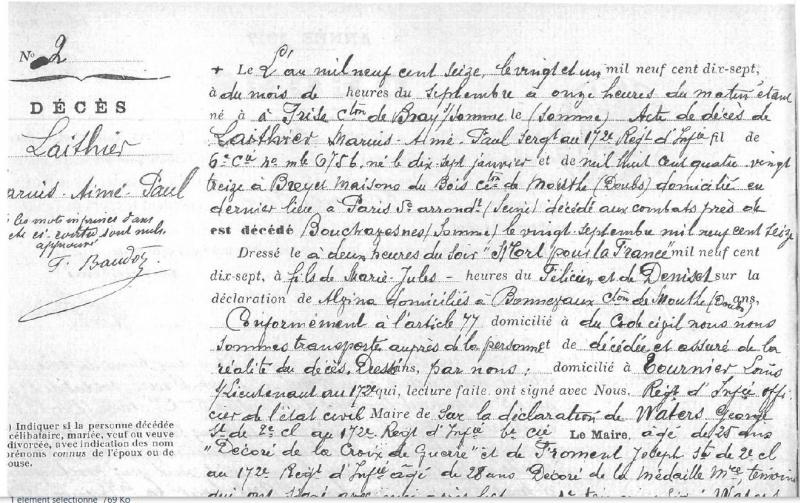 No 2
DÉCÈS
Laithier
Marius-Aimé-Paul
les mots imprimés dans
acte ci-contre sont nuls
approuvé
F. Baudot
(1) Indiquer si la personne décédée
célibataire, mariée, veuf ou veuve
divorcée, avec indication des nom
prénoms connus de l'époux ou de
ouse.
+ Le L'an mil neuf cent seize, le vingt et un mil neuf cent dix-sept,
à du mois de heures du septembre à onze heures du matin étant
né à à Frise cton de Bray s/Somme le (Somme) Acte de décès de
Laithier Marius-Aimé-Paul Sergt au 172e Regt d'Infie fil de
6e Cie No mle 6756. né le dix-sept janvier et de mil huit cent quatre vingt
treize à Brey et Maisons du Bois cton de Mouthe (Doubs) domicilié en
dernier lieu à Paris 5e arrondt (Seine) décédé aux combats près de
est décédé Bouchavesnes (Somme) le vingt septembre mil neuf cent seize
Dressé le à deux heures du soir "Mort pour la France" mil neuf cent
dix-sept, à fils de Marie-Jules - heures du Félicien et de Deniset sur la
déclaration de Alzina domiciliés à Bonnevaux cton de Mouthe (Doubs) ans,
Conformément à l'article 77 domicilié à du Code civil nous nous
sommes transporté auprès de la personne et de décédée et assuré de la
réalité du décès. Dressé ans, par nous ; domicilié à Tournier Louis
s/Lieutenant au 172e qui, lecture faite ont signé avec Nous, Regt d'Infie offi-
cier de l'état civil Maire de Sur la déclaration de Waters George
St de 2e cl au 172e Regt d'Infie 6e Cie Le Maire, âgé de 25 ans
"Décoré de la Croix de Guerre" et de Froment Joseph St de 2e cl
au 172e Regt d'Infie âgé de 28 ans Décoré de la Médaille Mre, témoins
qui ont signé avec
1 élément sélectionné 769 Ko